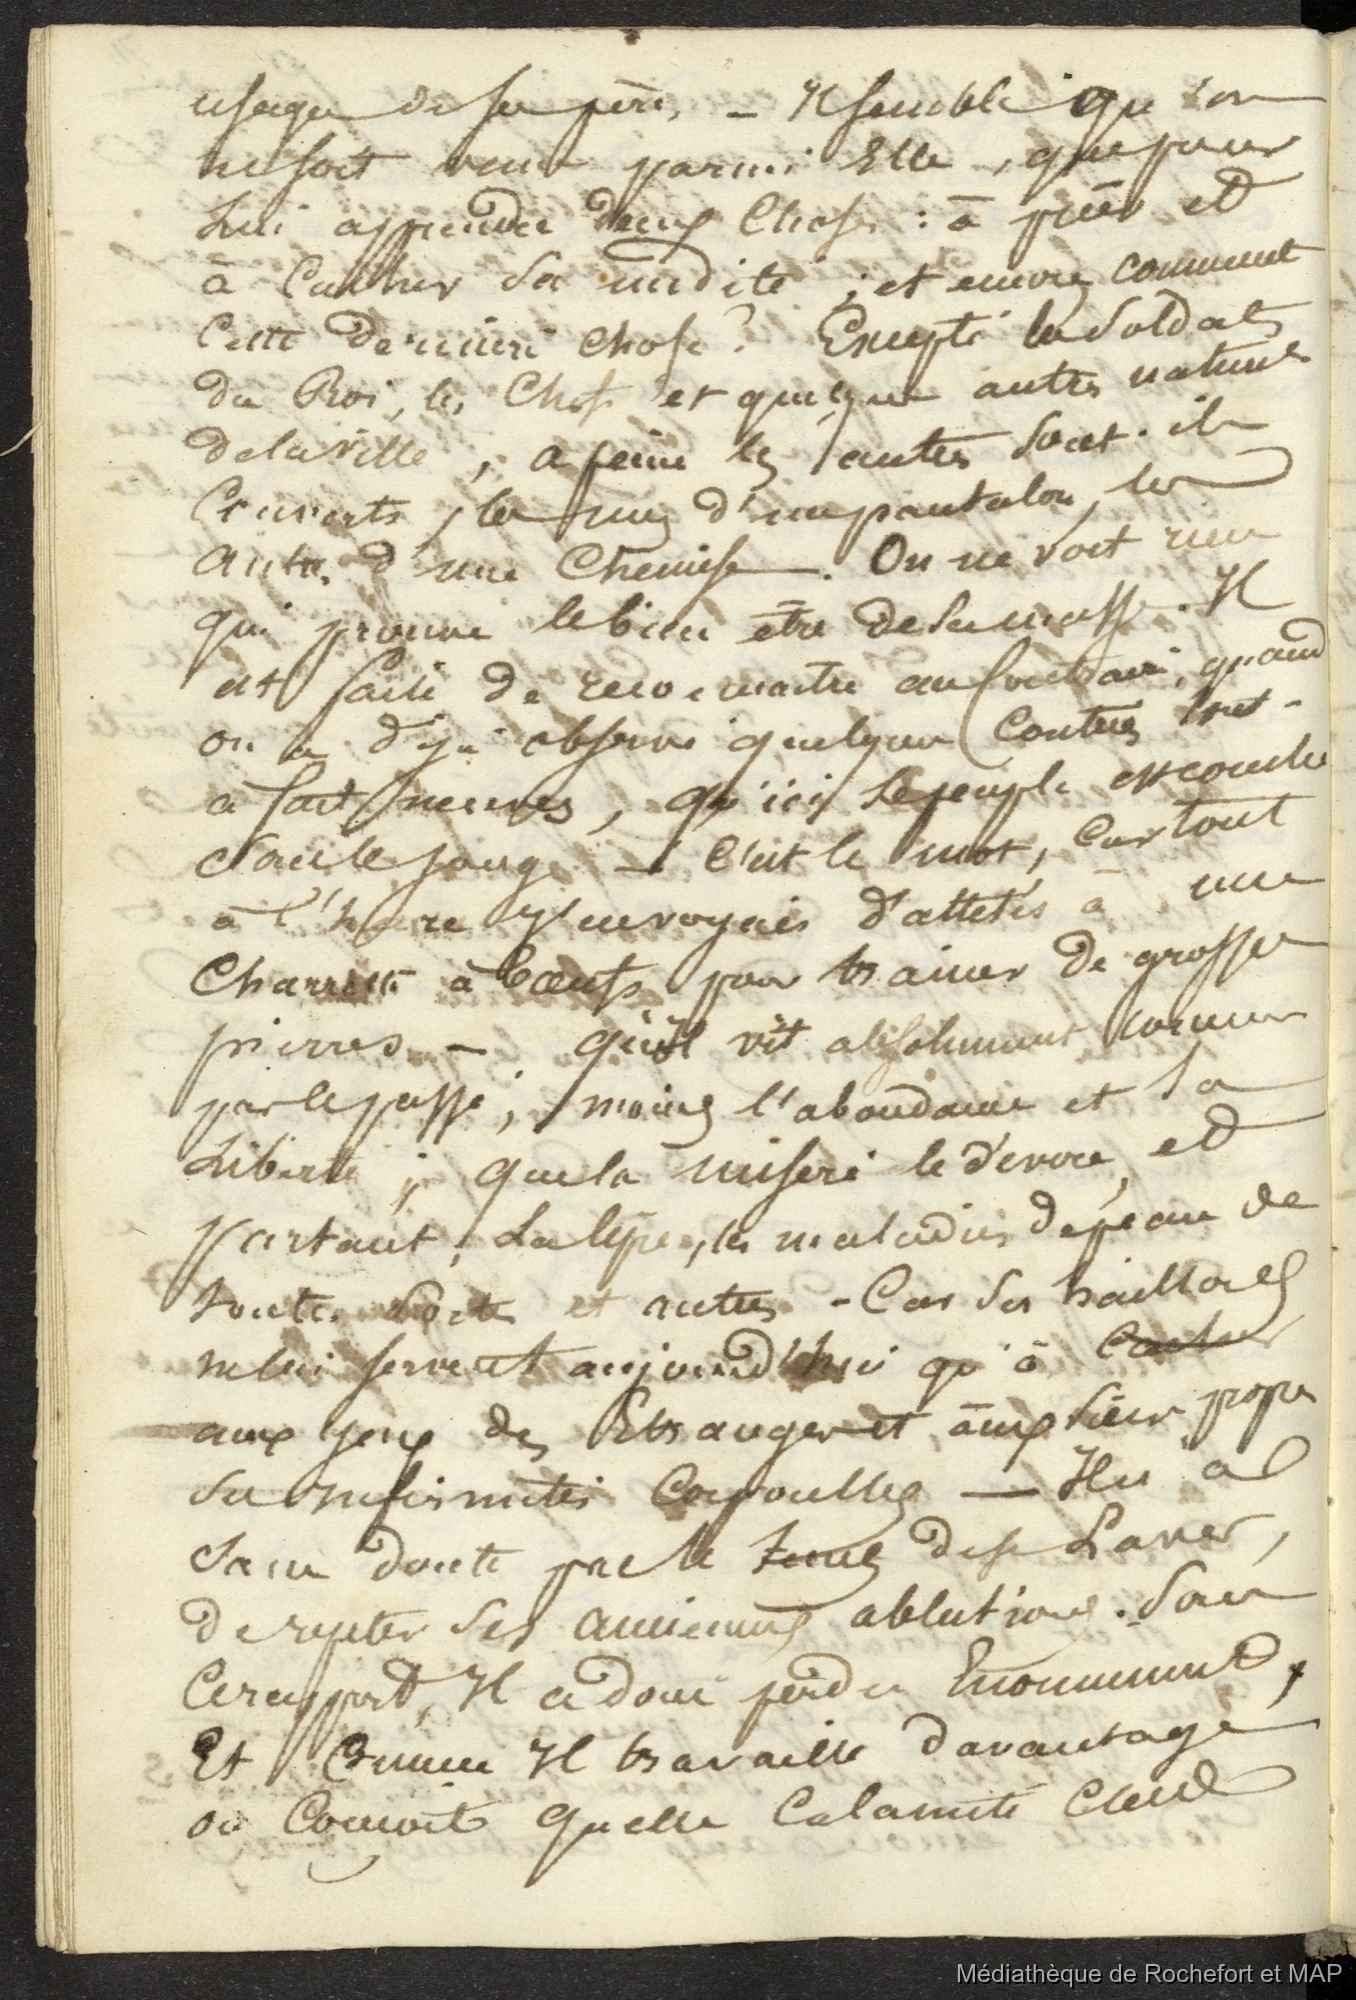 usages de ses pères, – Il semble qu'on
ne soit venu parmi Elle, que pour
Lui apprendre deux Choses : à prier et
à Cacher sa nudité ; et encore comment
Cette dernière chose ? Excepté les soldats
du Roi, les Chefs et quelques autres naturels
de la ville, à peine les autres sont-ils
Couverts, les uns d'un pantalon, les
autres d'une Chemise. On ne voit rien
qui prouve le bien être de la masse. Il
est facile de reconnaitre au Contraire, quand
on a déjà observé quelques Contrées tout-
à fait neuves, qu'ici le peuple est courbé
sous le joug – C'est le mot, Car tout
à l'heure J'en voyais d'attelés à une
Charrette à boeufs pour trainer de grosses
pierres – qu'il vit absolument comme
par le passé, moins l'abondance et la
Liberté ; que la misère le dévore, et
partant, La lèpre, les maladies de peau de
toutes sortes et autres – Car ses haillons
ne lui servent aujourd'hui qu'à Cacher
aux yeux des Etrangers et aux siens propres
ses infirmités Corporelles — Il n'a
sans doute pas le tems de se Laver,
de repeter ses anciennes ablutions. Sous
Ce rapport, Il a donc perdu Enormement,
Et Comme Il travaille davantage
on Conçoit quelle Calamité C'est
Médiathèque de Rochefort et MAP